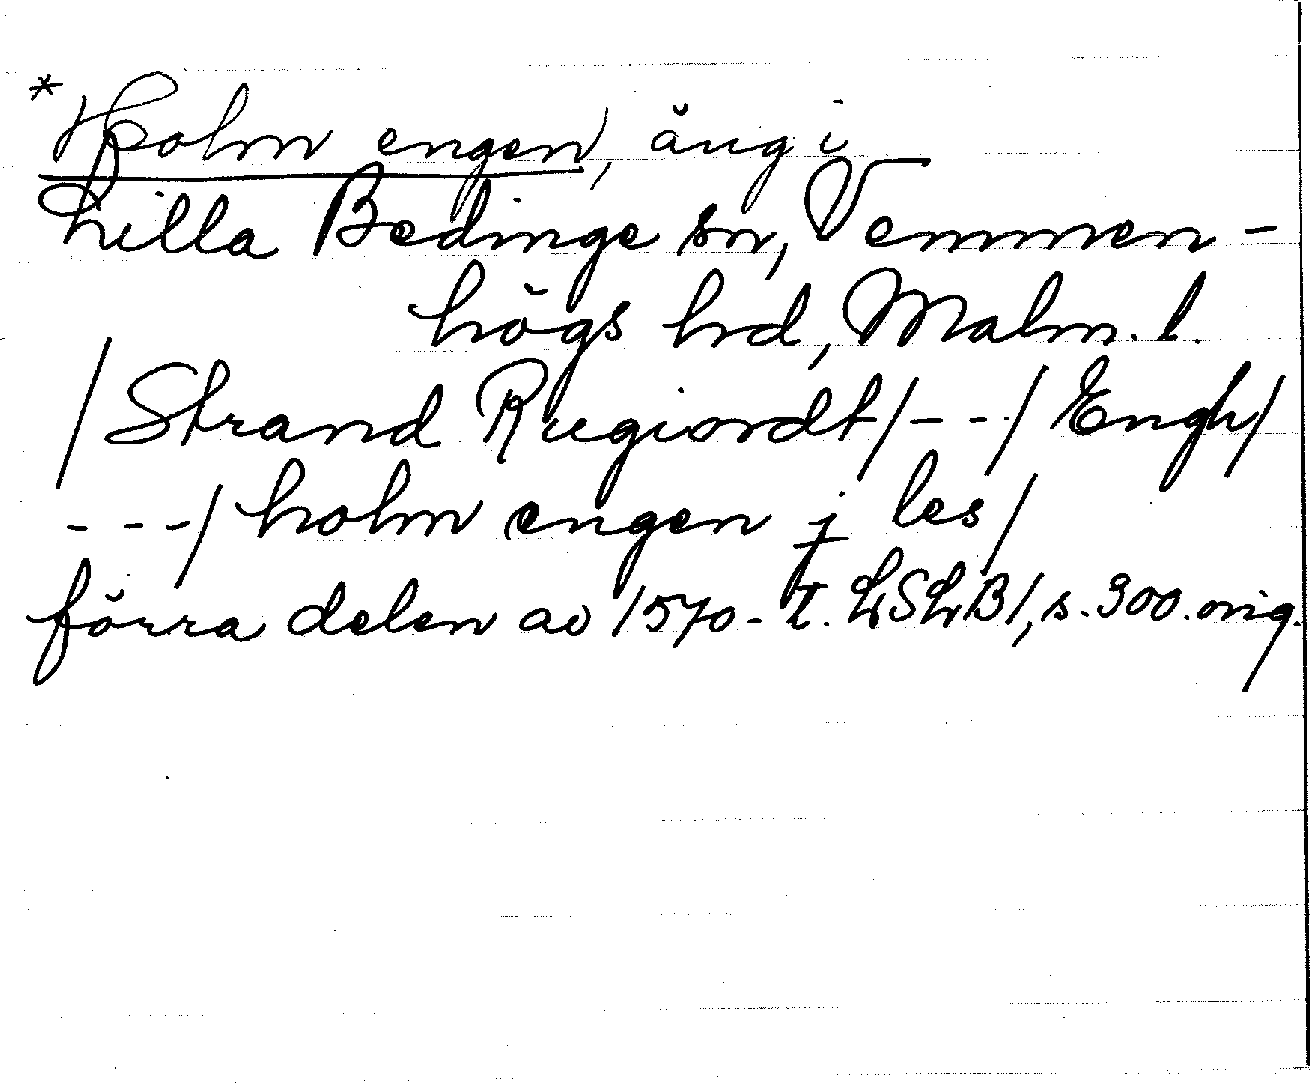 *Holm engen, äng i
Lilla Bedinge sn, Vemmen-
högs hd, Malm. l.
/Strand Rugiordt/---/Engh/
---/holm engen j les/
förra delen av 1570-t. LSLB1, s. 300. orig.